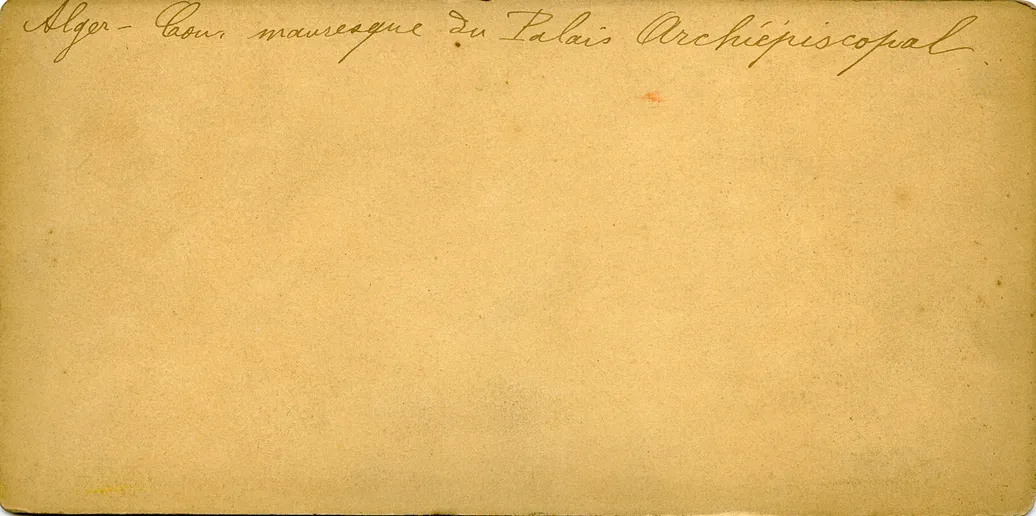 Alger - Cour mauresque du Palais Archiépiscopal